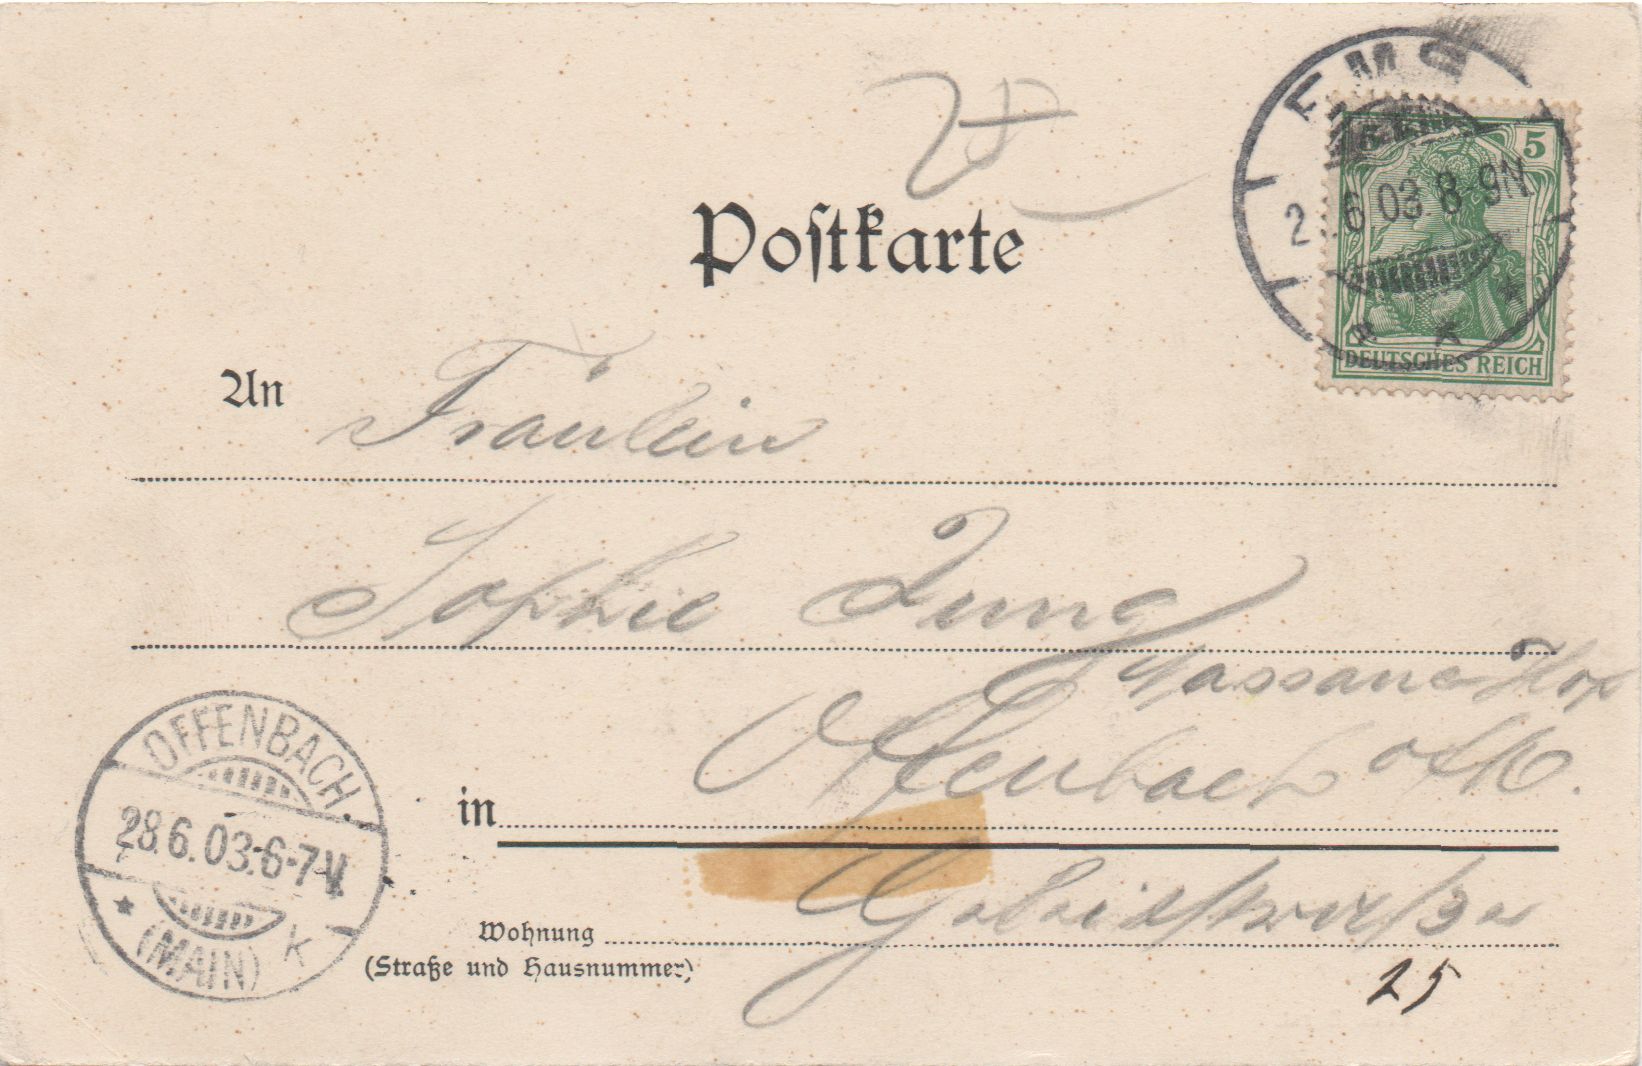 EMS
5
2 .6.03 8-9N
* K a
DEUTSCHES REICH
Postkarte
An Fräulein
Sophie Jung
Nassauer Hof
in Offenbach a/M.
Wohnung
(Straße und Hausnummer)
25
OFFENBACH
28.6.03.6-7V
* (MAIN) k